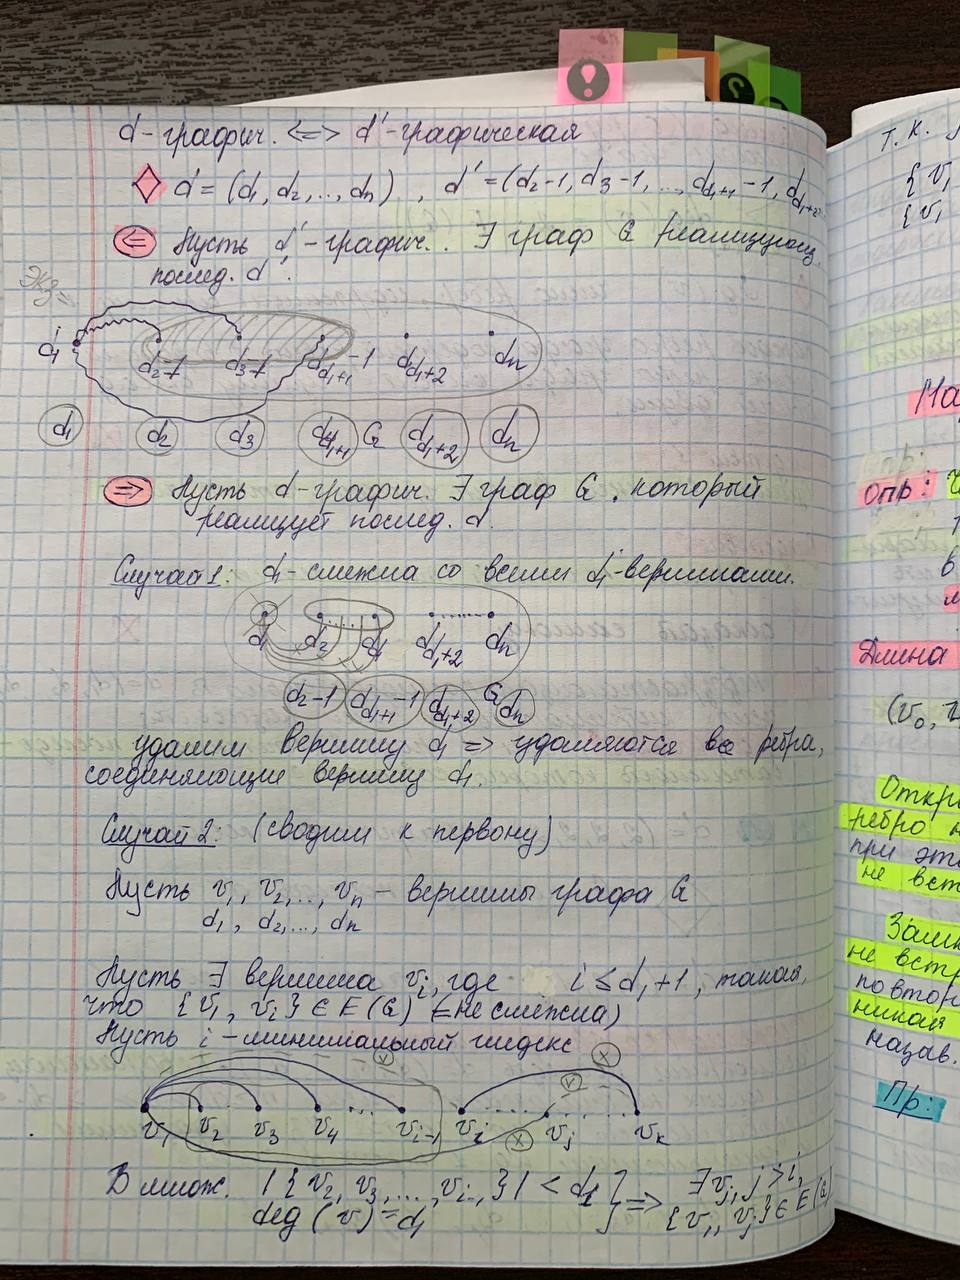 d-графич. <=> d'-графическая
d = (d₁, d₂, ..., dₙ) , d' = (d₂-1, d₃-1, ..., d_{d₁+1}-1, d_{d₁+2}
<= Пусть d'-графич. ∃ граф G реализующ.
послед. d'.
Экз
d₁ d₂-1 d₃-1 d_{d₁+1}-1 d_{d₁+2} dₙ
d₁ d₂ d₃ d_{d₁+1} G d_{d₁+2} dₙ
=> Пусть d-графич. ∃ граф G, который
реализует послед. d.
Случай 1: d₁-смежна со всеми d₁-вершинами.
d₁ d₂ d_{d₁+2} dₙ
d₂-1 d_{d₁+1}-1 d_{d₁+2} G dₙ
удалим вершину d₁ => удаляются все ребра,
соединяющие вершину d₁.
Случай 2: (сводим к первому)
Пусть v₁, v₂, ..., vₙ - вершины графа G
d₁, d₂, ..., dₙ
Пусть ∃ вершина vᵢ, где i ≤ d₁+1, такая,
что {v₁, vᵢ} ∈ E(G) (не смежна)
Пусть i-минимальный индекс
v x
v
v₁ v₂ v₃ v₄ ... vᵢ₋₁ vᵢ vⱼ vₖ
x
В множ. |{v₂, v₃, ..., vᵢ₋₁}| < d₁ } => ∃ vⱼ, j > i,
deg(v) = d₁ {v₁, vⱼ} ∈ E(G)
т.к.
{v₁
{v₁
Опр:
Длина
(v₀,
ребро
при эт
не вст
не встр
повтор
назв.
Пр: